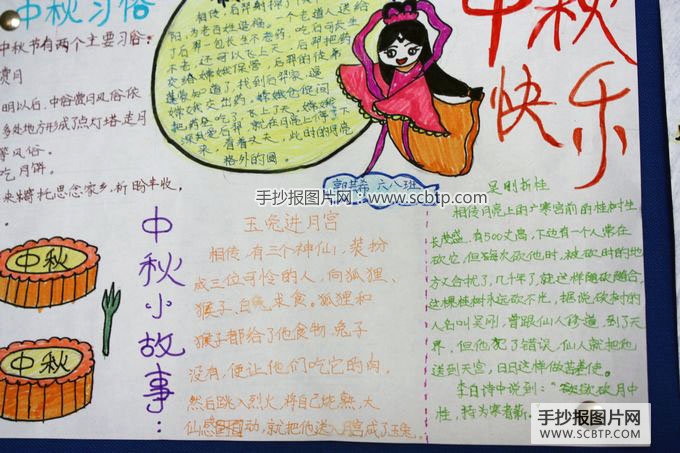 中秋习俗
中秋节有两个主要习俗:
赏月
明以后,中俗赏月风俗依
多处地方形成了点灯塔、走月
等风俗。
吃月饼。
来寄托思念家乡,祈盼丰收,
相传,后羿射掉了
阳,为老百姓造福。一个老道人送给
了后羿一包长生不老药,吃后可长生
不老,还可以飞上天。后羿把药
交给嫦娥保管。后羿的徒弟
蓬蒙知道了,找到后羿家,逼
嫦娥交出药,嫦娥仓促间
把药全吃了,飞上了天。嫦娥
深具爱后羿,就在月亮上停了下
来,看着大天,此时的月亮
格外的圆
中秋
快乐
六八班
手抄报图片网
www.scbtp.com
中秋小故事:
中秋
中秋
玉兔进月宫
相传,有三个神仙,装扮
成三位可怜的人,向狐狸、
猴子、白兔求食。狐狸和
猴子都给了他食物,兔子
没有,便让他们吃它的肉,
然后跳入烈火,将自己烧熟,大
仙感动,就把他送入月宫成了玉兔
吴刚折桂
相传月亮上的广寒宫前的桂树生
长茂盛,有500丈高,下边有一个人常在
砍它,但每次砍他时,被砍时的地
方又合拢了,几千年了,就这样随砍随合,
这棵桂树永远砍不光,据说砍树的
人名叫吴刚,曾跟仙人修道,到了天
界,但他犯了错误,仙人就把他
送到天宫,日日这样做苦差使。
李白诗中说到:"欲砍砍月中
桂,持为寒者薪
手抄报图片网
WWW.SCBTP.COM